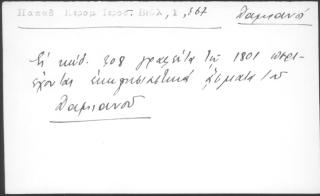 Παπαδ Ιεροσ Ιερος. Βιβλ, 1, 367
Δαμιανό
Ἐν κώδ. 308 γραφέντα τῷ 1801 περι-
έχονται ἐκκλησιαστικὰ ᾄσματα τοῦ
Δαμιανοῦ